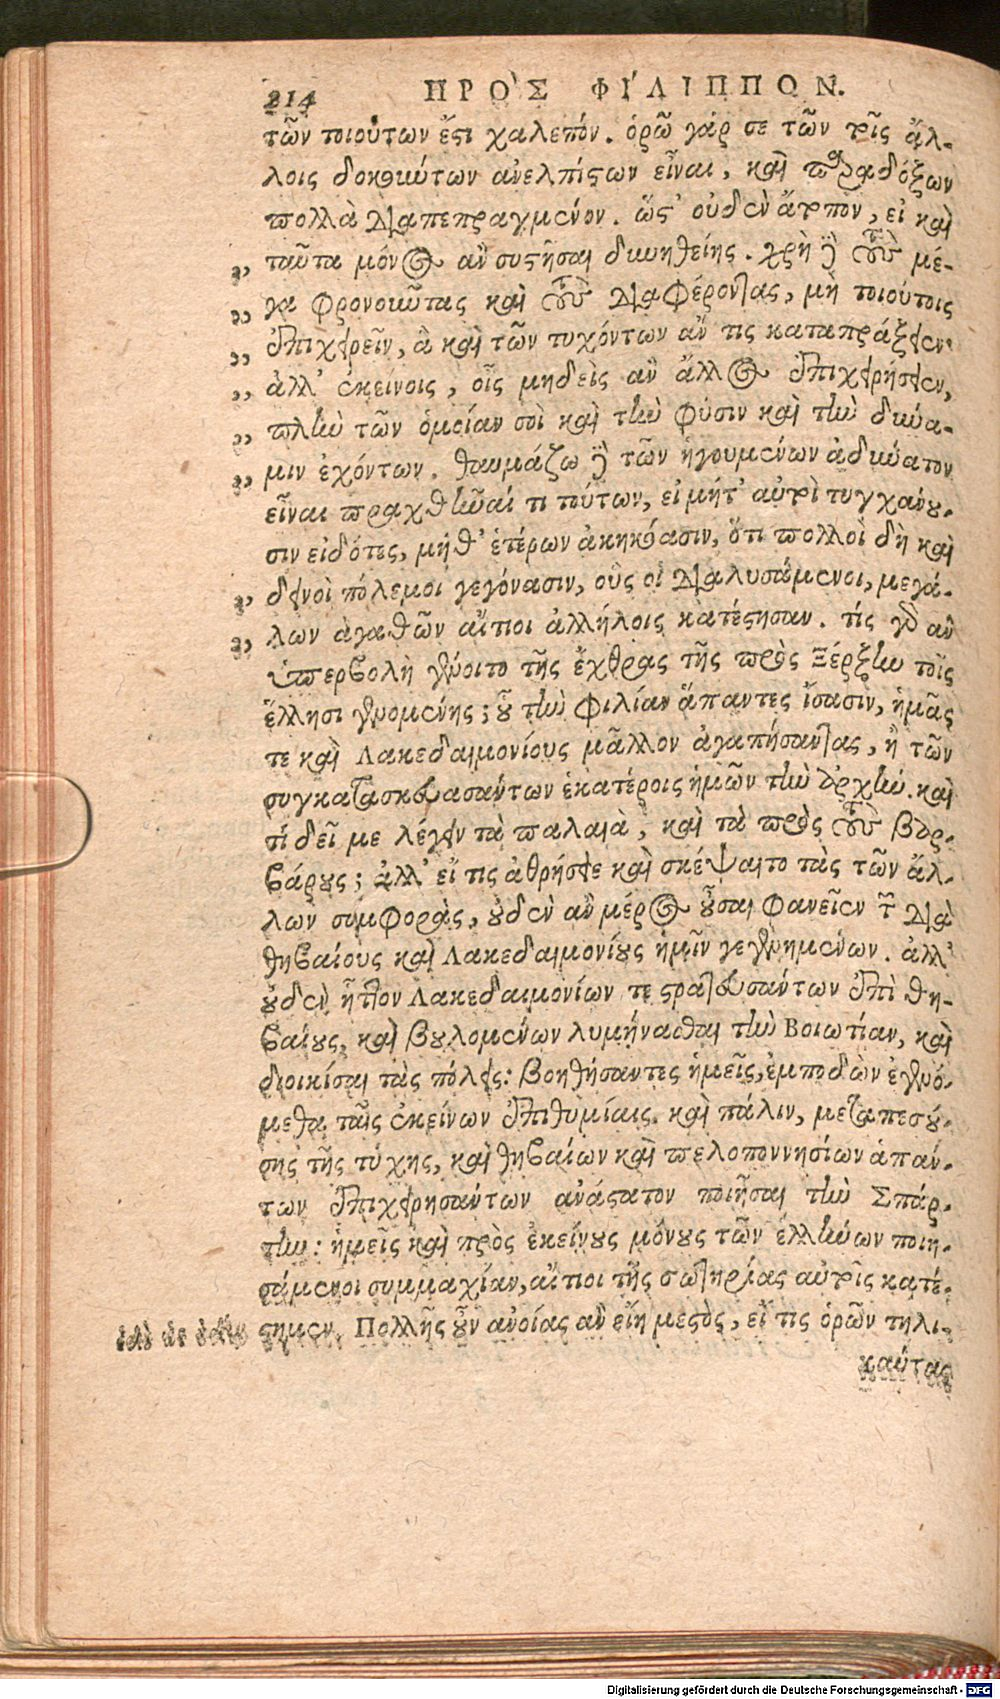 214 ΠΡΟ᾽Σ ΦΙ΄ΛΙΠΠΟΝ.
τῶν τοιούτων ἔστι χαλεπόν. ὁρῶ γάρ σε τῶν τοῖς ἄλ-
λοις δοκούντων ἀνελπίστων εἶναι, καὶ παραδόξων
πολλὰ διαπεπραγμένον. ὥστ' οὐδὲν ἄτοπον, εἰ καὶ
ταῦτα μόνος ἂν συστῆσαι δυνηθείης. χρὴ δὲ τοὺς μέ-
γα φρονοῦντας καὶ τοὺς διαφέροντας, μὴ τοιούτοις
ἐπιχειρεῖν, ἃ καὶ τῶν τυχόντων ἄν τις καταπράξειεν·
ἀλλ' ἐκείνοις, οἷς μηδεὶς ἂν ἄλλος ἐπιχειρήσειεν,
πλὴν τῶν ὁμοίαν σοὶ καὶ τὴν φύσιν καὶ τὴν δύνα-
μιν ἐχόντων. θαυμάζω δὲ τῶν ἡγουμένων ἀδύνατον
εἶναι πραχθῆναί τι τούτων, εἰ μήτ' αὐτοὶ τυγχάνου-
σιν εἰδότες, μήθ' ἑτέρων ἀκηκόασιν, ὅτι πολλοὶ δὴ καὶ
δεινοὶ πόλεμοι γεγόνασιν, οὓς οἱ διαλυσάμενοι, μεγά-
λων ἀγαθῶν αἴτιοι ἀλλήλοις κατέστησαν. τίς γὰρ ἂν
ὑπερβολὴ γένοιτο τῆς ἔχθρας τῆς πρὸς Ξέρξην τοῖς
ἕλλησι γενομένης; οὗ τὴν φιλίαν ἅπαντες ἴσασιν, ἡμᾶς
τε καὶ Λακεδαιμονίους μᾶλλον ἀγαπήσαντας, ἢ τῶν
συγκατασκευασάντων ἑκατέροις ἡμῶν τὴν ἀρχήν. καὶ
τί δεῖ με λέγειν τὰ παλαιὰ, καὶ τὰ πρὸς τοὺς βαρ-
βάρους; ἀλλ' εἴ τις ἀθρήσειε καὶ σκέψαιτο τὰς τῶν ἄλ-
λων συμφορὰς, οὐδὲν ἂν μέρος οὖσαι φανεῖεν τῶν διὰ
θηβαίους καὶ Λακεδαιμονίους ἡμῖν γεγενημένων. ἀλλ'
οὐδὲν ἧττον Λακεδαιμονίων τε στρατευσάντων ἐπὶ θη-
βαίους, καὶ βουλομένων λυμήνασθαι τὴν Βοιωτίαν, καὶ
διοικίσαι τὰς πόλεις: βοηθήσαντες ἡμεῖς, ἐμποδὼν ἐγενό-
μεθα ταῖς ἐκείνων ἐπιθυμίαις. καὶ πάλιν, μεταπεσού-
σης τῆς τύχης, καὶ θηβαίων καὶ πελοποννησίων ἁπάν-
των ἐπιχειρησάντων ἀνάστατον ποιῆσαι τὴν Σπάρ-
την: ἡμεῖς καὶ πρὸς ἐκείνους μόνους τῶν ἑλλήνων ποιη-
σάμενοι συμμαχίαν, αἴτιοι τῆς σωτηρίας αὐτοῖς κατέ-
στημεν. Πολλῆς οὖν ἀνοίας ἂν εἴη μεστὸς, εἴ τις ὁρῶν τηλι-
καύτας